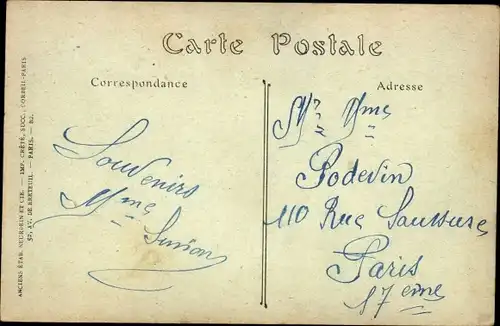 Carte Postale
Correspondance
Adresse
Souvenirs
Mme Simon
Mr Mme
Podevin
110 Rue Saussure
Paris
17 eme
ANCIENS ÉTAB. NEURDEIN ET CIE. — IMP. CRÉTÉ, SUCC., CORBEIL-PARIS
52, AV. DE BRETEUIL. — PARIS.